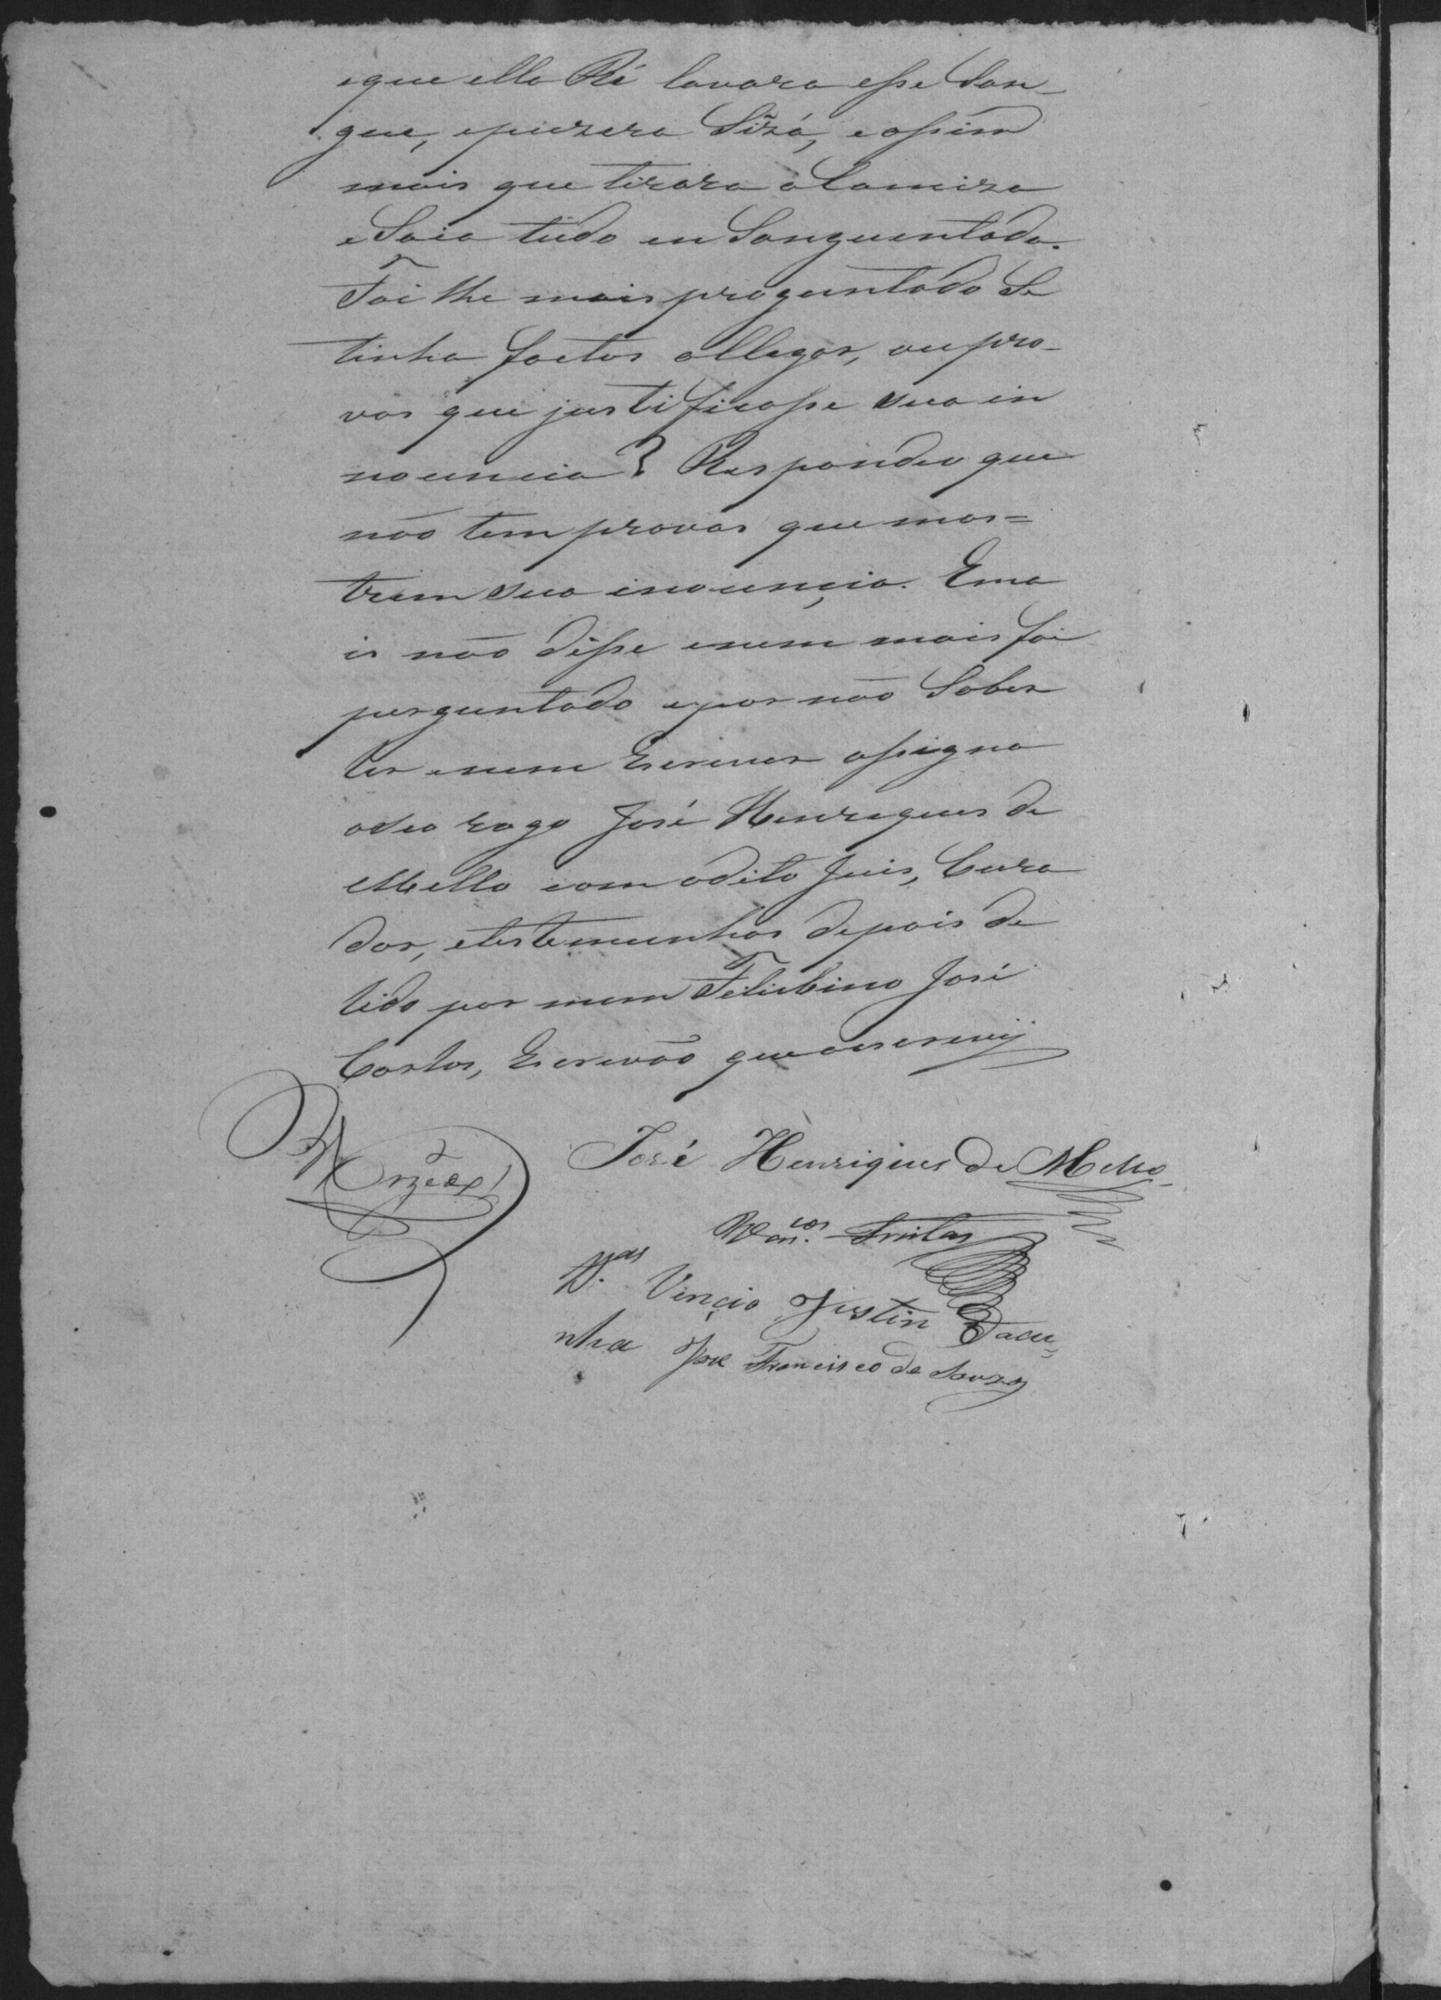 e que ella Ré lavara esse San-
gue, epuzera Sizá, e assim
mais que tirara a Camiza
e Saia tudo en Sanguentado.
Foi lhe mais proguntado Se
tinha factos allegar, ou pro-
vas que justificasse sua in
nocencia? Respondeo que
não tem provas que mos=
trem sua inocençia. E ma
is não disse enem mais foi
perguntado epor não Saber
ler enem Escrever assigna
aseo rogo José Henriques de
Mello com odito Juis, Cura
dor, etestemunhas depois de
lido por mim Felisbino José
Carlos, Escrivão que oescrevij
José Henriques de Mello
Freitas
Vençio Justin Dacu-
nha José Francisco de Souza